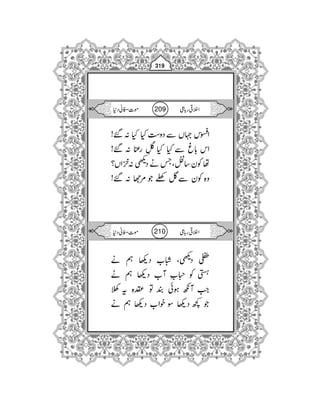 319
اخلاقی رباعی 209 موت-فانی دنیا
افسوس جہاں سے دوست کیا کیا نہ گئے!
اس باغ سے کیا کیا گلِ رعنا نہ گئے!
تھا کون سا نخل، جس نے دیکھی نہ خزاں؟
وہ کون سے گل کھلے جو مرجھا نہ گئے!
اخلاقی رباعی 210 موت-فانی دنیا
طفلی دیکھی، شباب دیکھا ہم نے
ہستی کو حبابِ آب دیکھا ہم نے
جب آنکھ ہوئی بند تو عقدہ یہ کھلا
جو کچھ دیکھا سو خواب دیکھا ہم نے